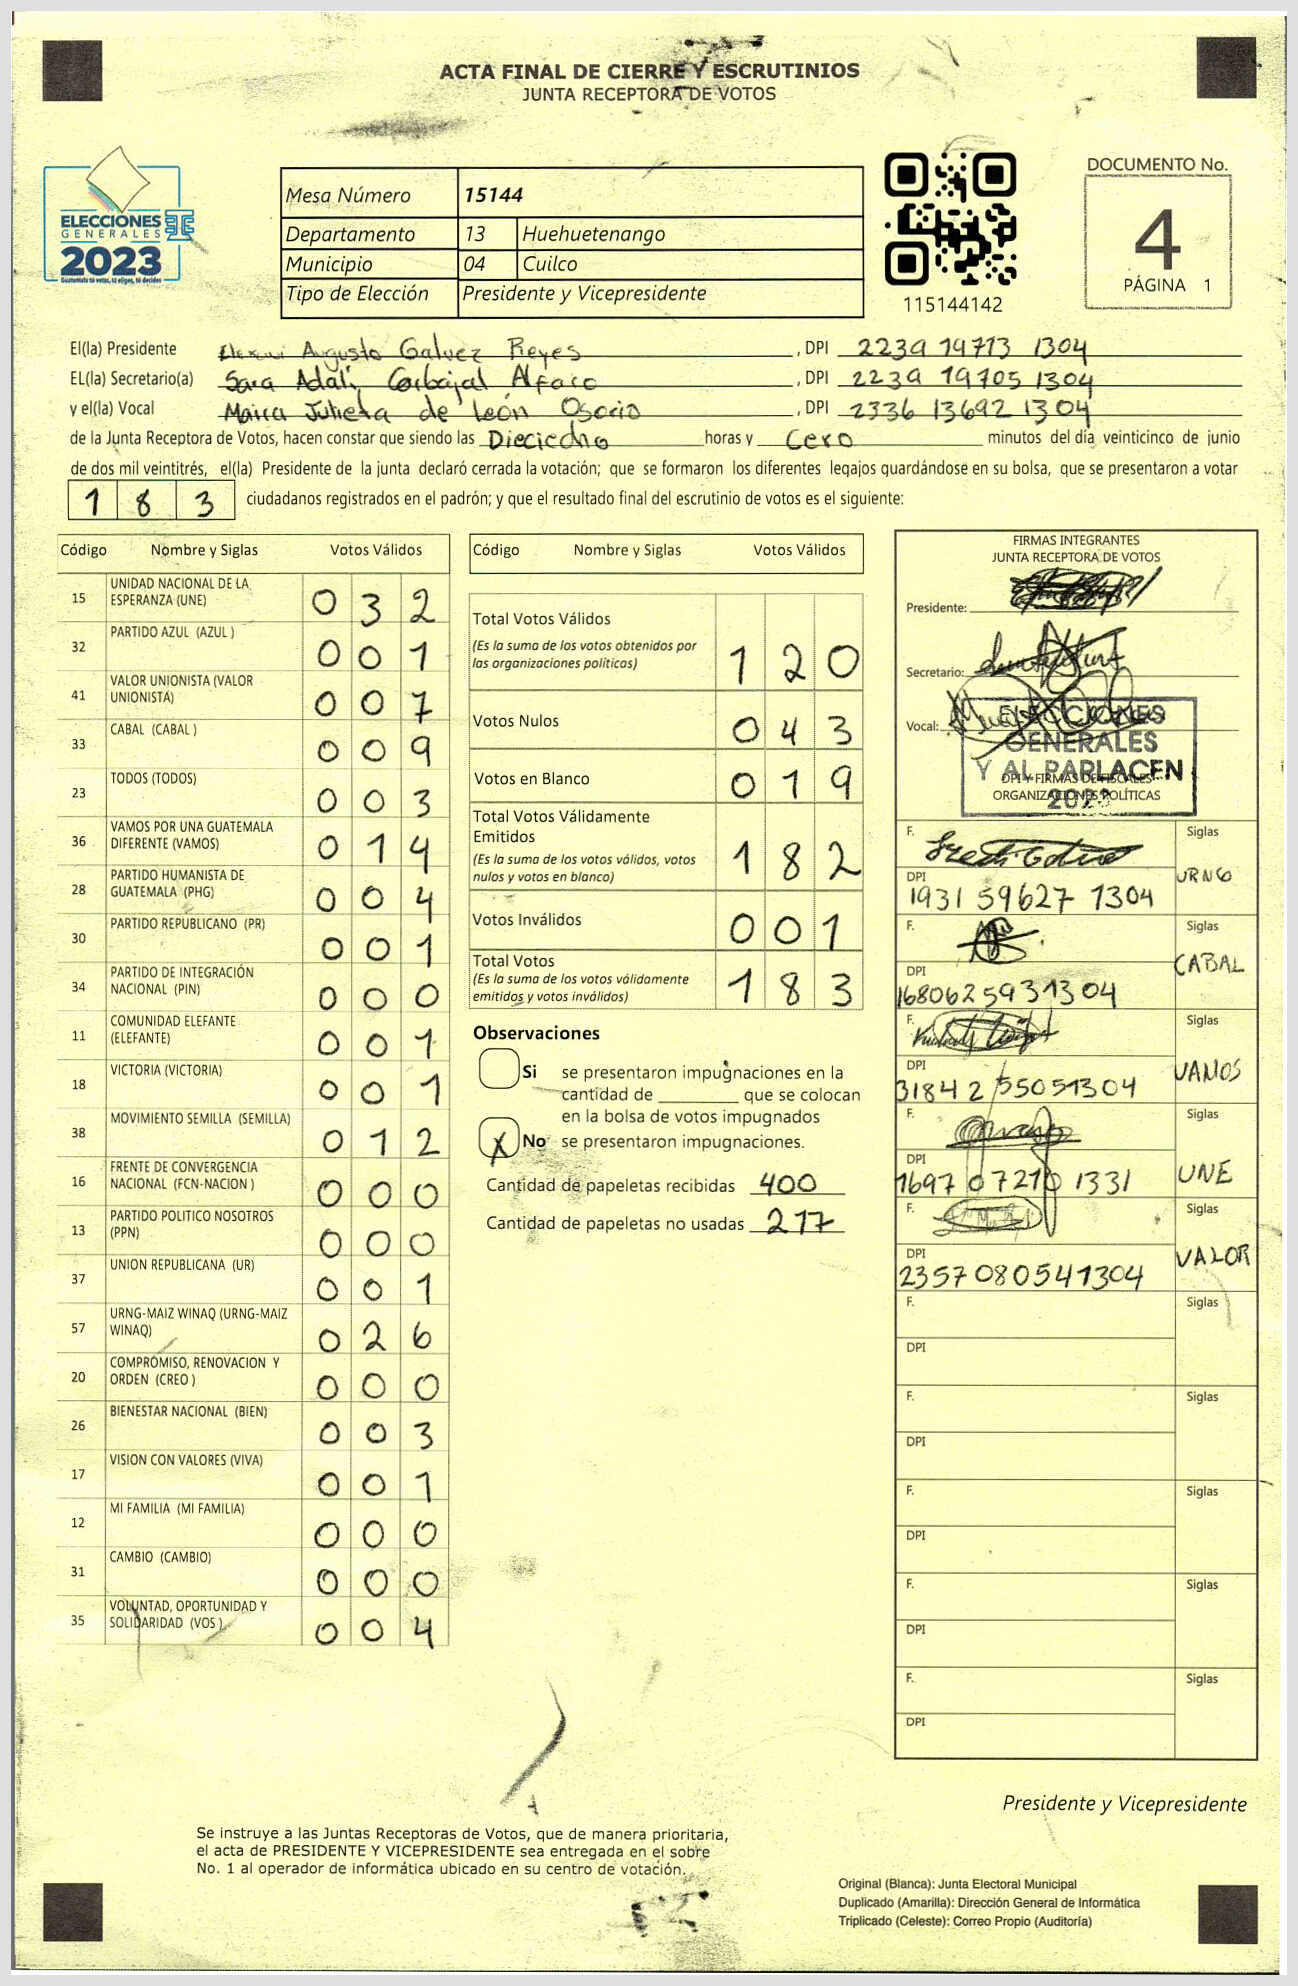 ACTA FINAL DE CIERRE Y ESCRUTINIOS
JUNTA RECEPTORA DE VOTOS
ELECCIONES
GENERALES
2023
Guatemala tú votas, tú eliges, tú decides
Mesa Número 15144
Departamento 13 Huehuetenango
Municipio 04 Cuilco
Tipo de Elección Presidente y Vicepresidente
115144142
DOCUMENTO No.
4
PÁGINA 1
El(la) Presidente Augusto Galvez Reyes , DPI 2239 19713 1304
EL(la) Secretario(a) Sara Adalí Carbajal Alfaro , DPI 2239 19705 1304
y el(la) Vocal Maira Julieta de León Osorio , DPI 2336 13692 1304
de la Junta Receptora de Votos, hacen constar que siendo las Dieciocho horas y Cero minutos del día veinticinco de junio
de dos mil veintitrés, el(la) Presidente de la junta declaró cerrada la votación; que se formaron los diferentes legajos guardándose en su bolsa, que se presentaron a votar
183 ciudadanos registrados en el padrón; y que el resultado final del escrutinio de votos es el siguiente:
Código Nombre y Siglas Votos Válidos
15 UNIDAD NACIONAL DE LA ESPERANZA (UNE) 0 3 2
32 PARTIDO AZUL (AZUL ) 0 0 1
41 VALOR UNIONISTA (VALOR UNIONISTA) 0 0 7
33 CABAL (CABAL ) 0 0 9
23 TODOS (TODOS) 0 0 3
36 VAMOS POR UNA GUATEMALA DIFERENTE (VAMOS) 0 1 4
28 PARTIDO HUMANISTA DE GUATEMALA (PHG) 0 0 4
30 PARTIDO REPUBLICANO (PR) 0 0 1
34 PARTIDO DE INTEGRACIÓN NACIONAL (PIN) 0 0 0
11 COMUNIDAD ELEFANTE (ELEFANTE) 0 0 1
18 VICTORIA (VICTORIA) 0 0 1
38 MOVIMIENTO SEMILLA (SEMILLA) 0 1 2
16 FRENTE DE CONVERGENCIA NACIONAL (FCN-NACION ) 0 0 0
13 PARTIDO POLITICO NOSOTROS (PPN) 0 0 0
37 UNION REPUBLICANA (UR) 0 0 1
57 URNG-MAIZ WINAQ (URNG-MAIZ WINAQ) 0 2 6
20 COMPROMISO, RENOVACION Y ORDEN (CREO ) 0 0 0
26 BIENESTAR NACIONAL (BIEN) 0 0 3
17 VISION CON VALORES (VIVA) 0 0 1
12 MI FAMILIA (MI FAMILIA) 0 0 0
31 CAMBIO (CAMBIO) 0 0 0
35 VOLUNTAD, OPORTUNIDAD Y SOLIDARIDAD (VOS ) 0 0 4
Código Nombre y Siglas Votos Válidos
Total Votos Válidos
(Es la suma de los votos obtenidos por
las organizaciones políticas) 1 2 0
Votos Nulos 0 4 3
Votos en Blanco 0 1 9
Total Votos Válidamente
Emitidos
(Es la suma de los votos válidos, votos
nulos y votos en blanco) 1 8 2
Votos Inválidos 0 0 1
Total Votos
(Es la suma de los votos válidamente
emitidos y votos inválidos) 1 8 3
Observaciones
Si se presentaron impugnaciones en la
cantidad de ________ que se colocan
en la bolsa de votos impugnados
X No se presentaron impugnaciones.
Cantidad de papeletas recibidas 400
Cantidad de papeletas no usadas 217
FIRMAS INTEGRANTES
JUNTA RECEPTORA DE VOTOS
Presidente:
Secretario:
Vocal:
ELECCIONES
GENERALES
Y AL PARLACEN
2023
DPI Y FIRMAS DE FISCALES
ORGANIZACIONES POLÍTICAS
F. Siglas
DPI 1931 59627 1304 URNG
F. Siglas
DPI 1680625931304 CABAL
F. Siglas
DPI 31842 55051304 VAMOS
F. Siglas
DPI 1697 07210 1331 UNE
F. Siglas
DPI 2357080541304 VALOR
F. Siglas
DPI
F. Siglas
DPI
F. Siglas
DPI
F. Siglas
DPI
F. Siglas
DPI
Presidente y Vicepresidente
Se instruye a las Juntas Receptoras de Votos, que de manera prioritaria,
el acta de PRESIDENTE Y VICEPRESIDENTE sea entregada en el sobre
No. 1 al operador de informática ubicado en su centro de votación.
Original (Blanca): Junta Electoral Municipal
Duplicado (Amarilla): Dirección General de Informática
Triplicado (Celeste): Correo Propio (Auditoría)